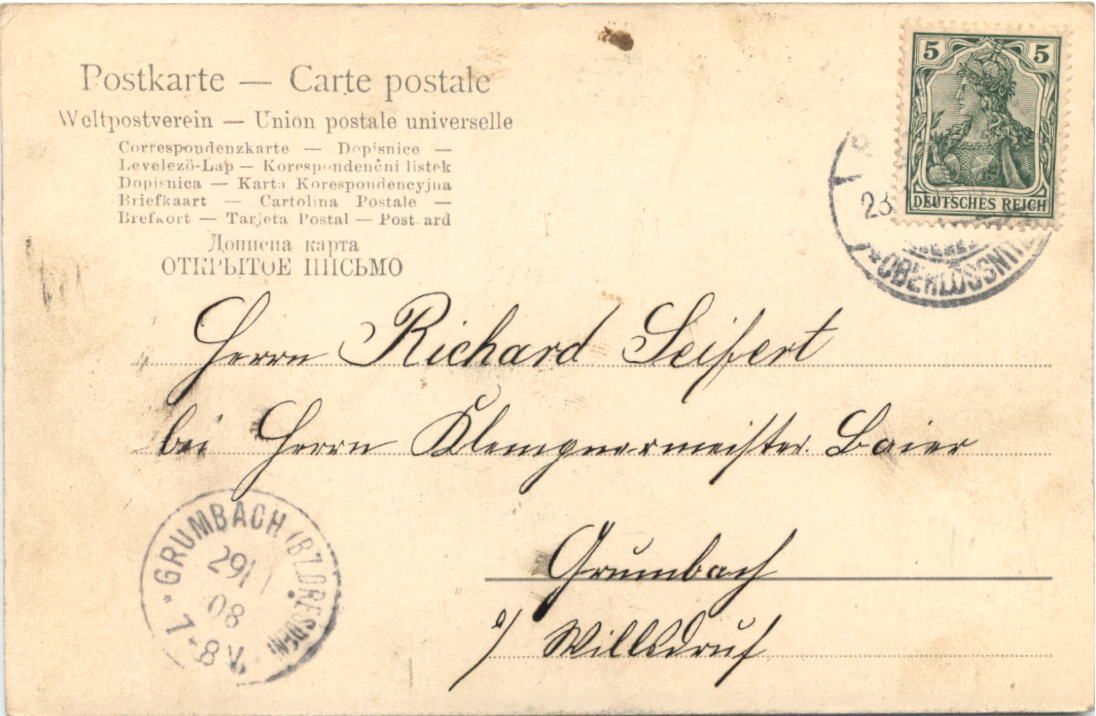 Postkarte — Carte postale
Weltpostverein — Union postale universelle
Correspondenzkarte — Dopisnice —
Levelező-Lap — Korespondenční lístek
Dopisnica — Karta Korespondencyjna
Briefkaart — Cartolina Postale —
Brefkort — Tarjeta Postal — Postcard
Дописна карта
ОТКРЫТОЕ ПИСЬМО
5 5
DEUTSCHES REICH
OBERLÖSSNITZ
Herrn Richard Seifert
bei Herrn Klempnermeister Baier
Grumbach
b/ Willsdruf
* GRUMBACH (BZ. DRESDEN)
29
08
7-8 V.